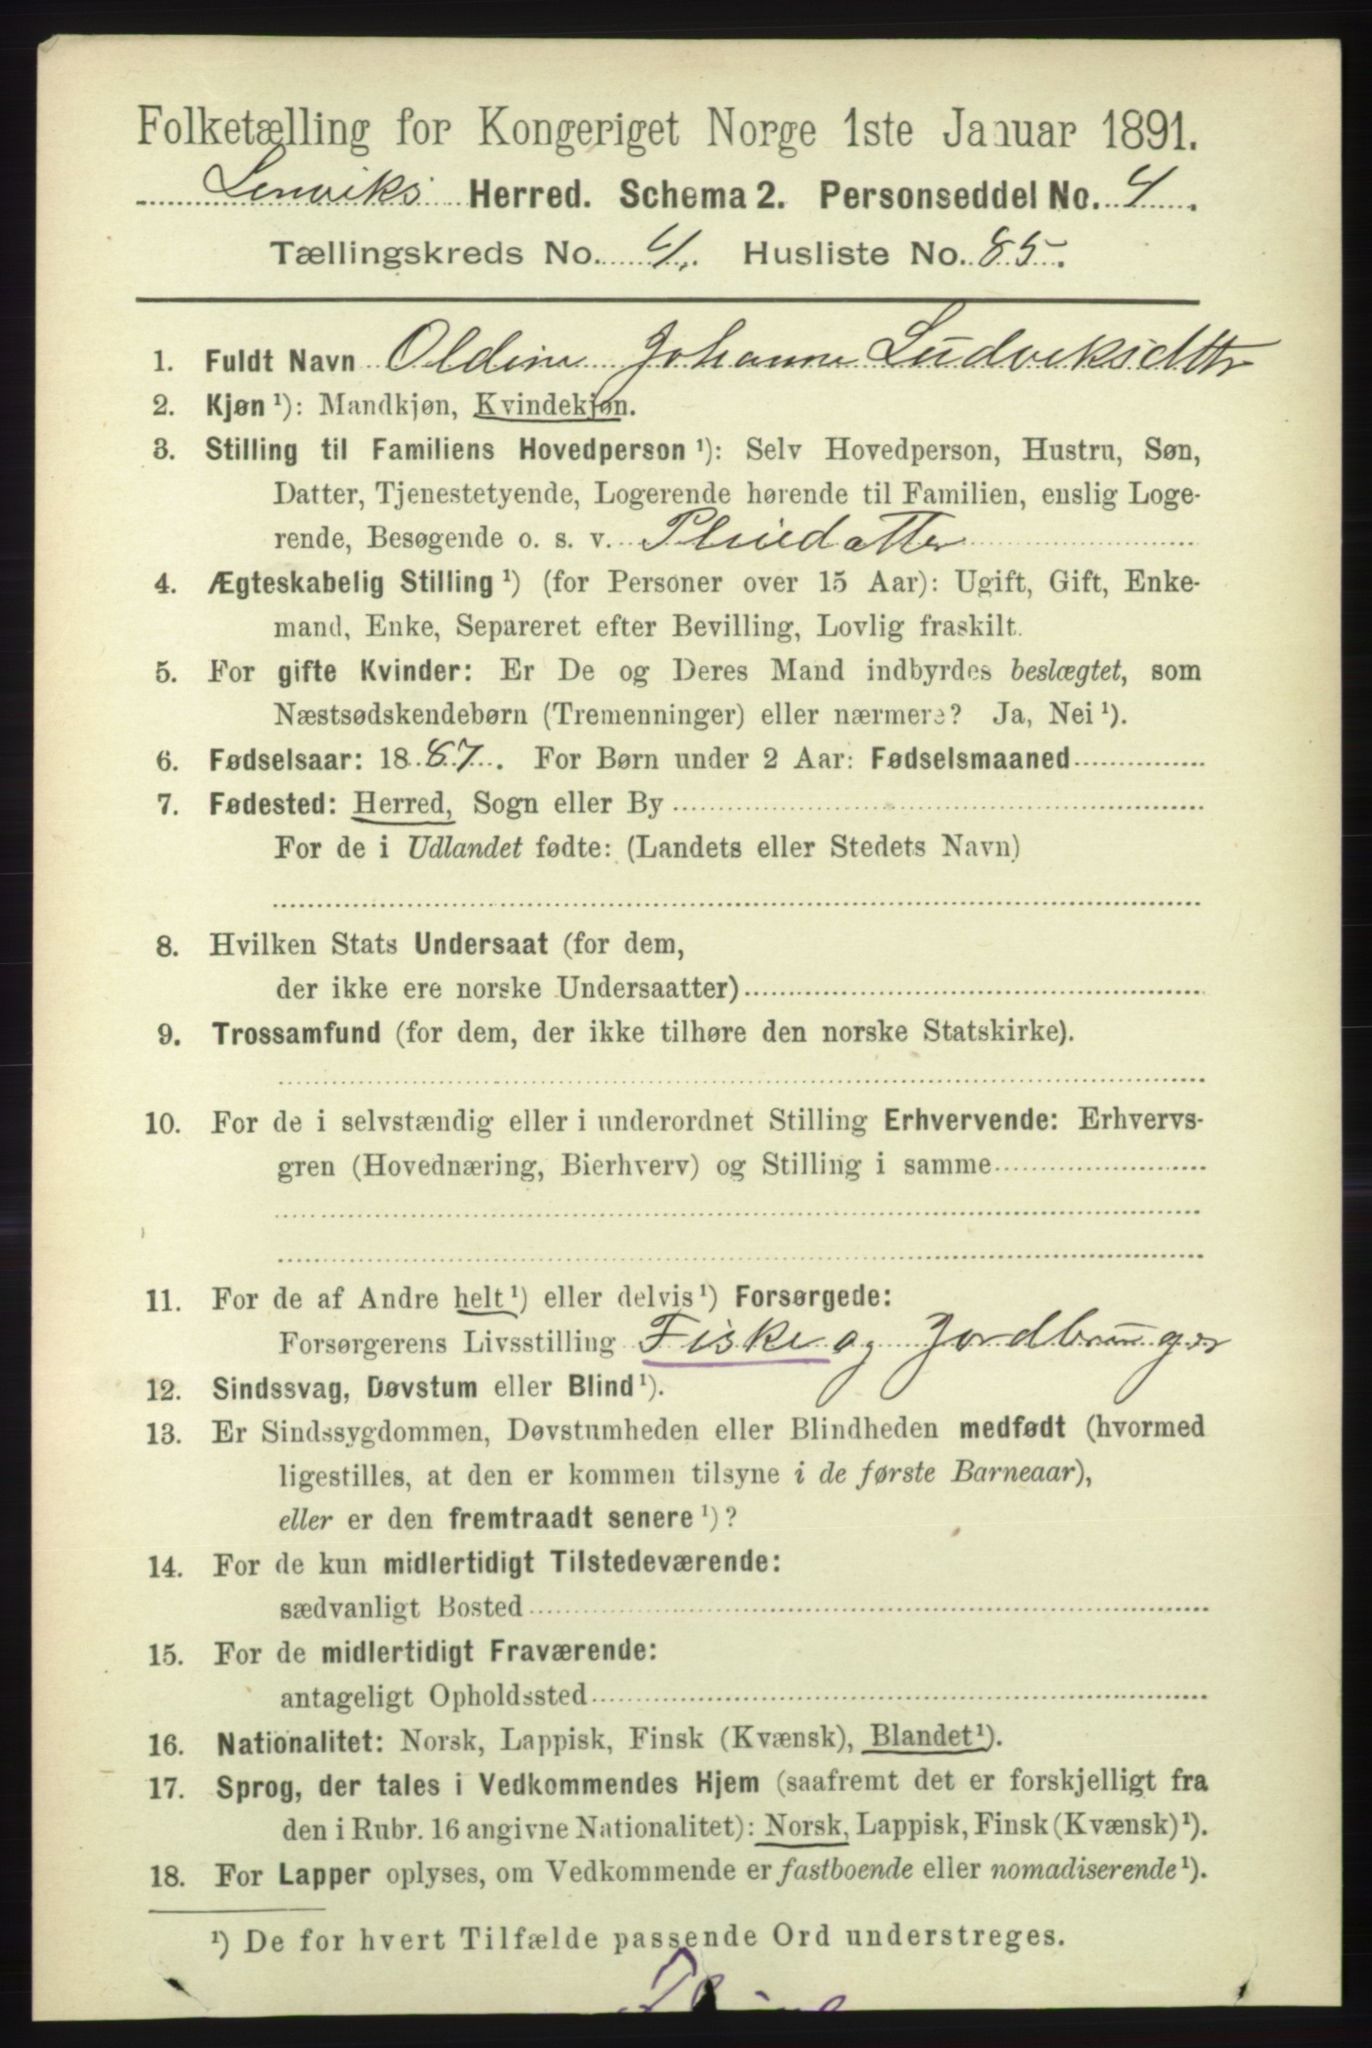 Folketælling for Kongeriget Norge 1ste Januar 1891.
Lenviks Herred. Schema 2. Personseddel No. 4.
Tællingskreds No. 4. Husliste No. 85.
1. Fuldt Navn Oldine Johanne Ludviksdttr
2. Kjøn ¹): Mandkjøn, Kvindekjøn.
3. Stilling til Familiens Hovedperson ¹): Selv Hovedperson, Hustru, Søn,
Datter, Tjenestetyende, Logerende hørende til Familien, enslig Loge-
rende, Besøgende o. s. v. Pleiedatter
4. Ægteskabelig Stilling ¹) (for Personer over 15 Aar): Ugift, Gift, Enke-
mand, Enke, Separeret efter Bevilling, Lovlig fraskilt.
5. For gifte Kvinder: Er De og Deres Mand indbyrdes beslægtet, som
Næstsødskendebørn (Tremenninger) eller nærmere? Ja, Nei ¹).
6. Fødselsaar: 1887. For Børn under 2 Aar: Fødselsmaaned
7. Fødested: Herred, Sogn eller By
For de i Udlandet fødte: (Landets eller Stedets Navn)
8. Hvilken Stats Undersaat (for dem,
der ikke ere norske Undersaatter)
9. Trossamfund (for dem, der ikke tilhøre den norske Statskirke).
10. For de i selvstændig eller i underordnet Stilling Erhvervende: Erhvervs-
gren (Hovednæring, Bierhverv) og Stilling i samme
11. For de af Andre helt ¹) eller delvis ¹) Forsørgede:
Forsørgerens Livsstilling Fiske og Jordbruger
12. Sindssvag, Døvstum eller Blind ¹).
13. Er Sindssygdommen, Døvstumheden eller Blindheden medfødt (hvormed
ligestilles, at den er kommen tilsyne i de første Barneaar),
eller er den fremtraadt senere ¹)?
14. For de kun midlertidigt Tilstedeværende:
sædvanligt Bosted
15. For de midlertidigt Fraværende:
antageligt Opholdssted
16. Nationalitet: Norsk, Lappisk, Finsk (Kvænsk), Blandet ¹).
17. Sprog, der tales i Vedkommendes Hjem (saafremt det er forskjelligt fra
den i Rubr. 16 angivne Nationalitet): Norsk, Lappisk, Finsk (Kvænsk) ¹).
18. For Lapper oplyses, om Vedkommende er fastboende eller nomadiserende ¹).
¹) De for hvert Tilfælde passende Ord understreges.